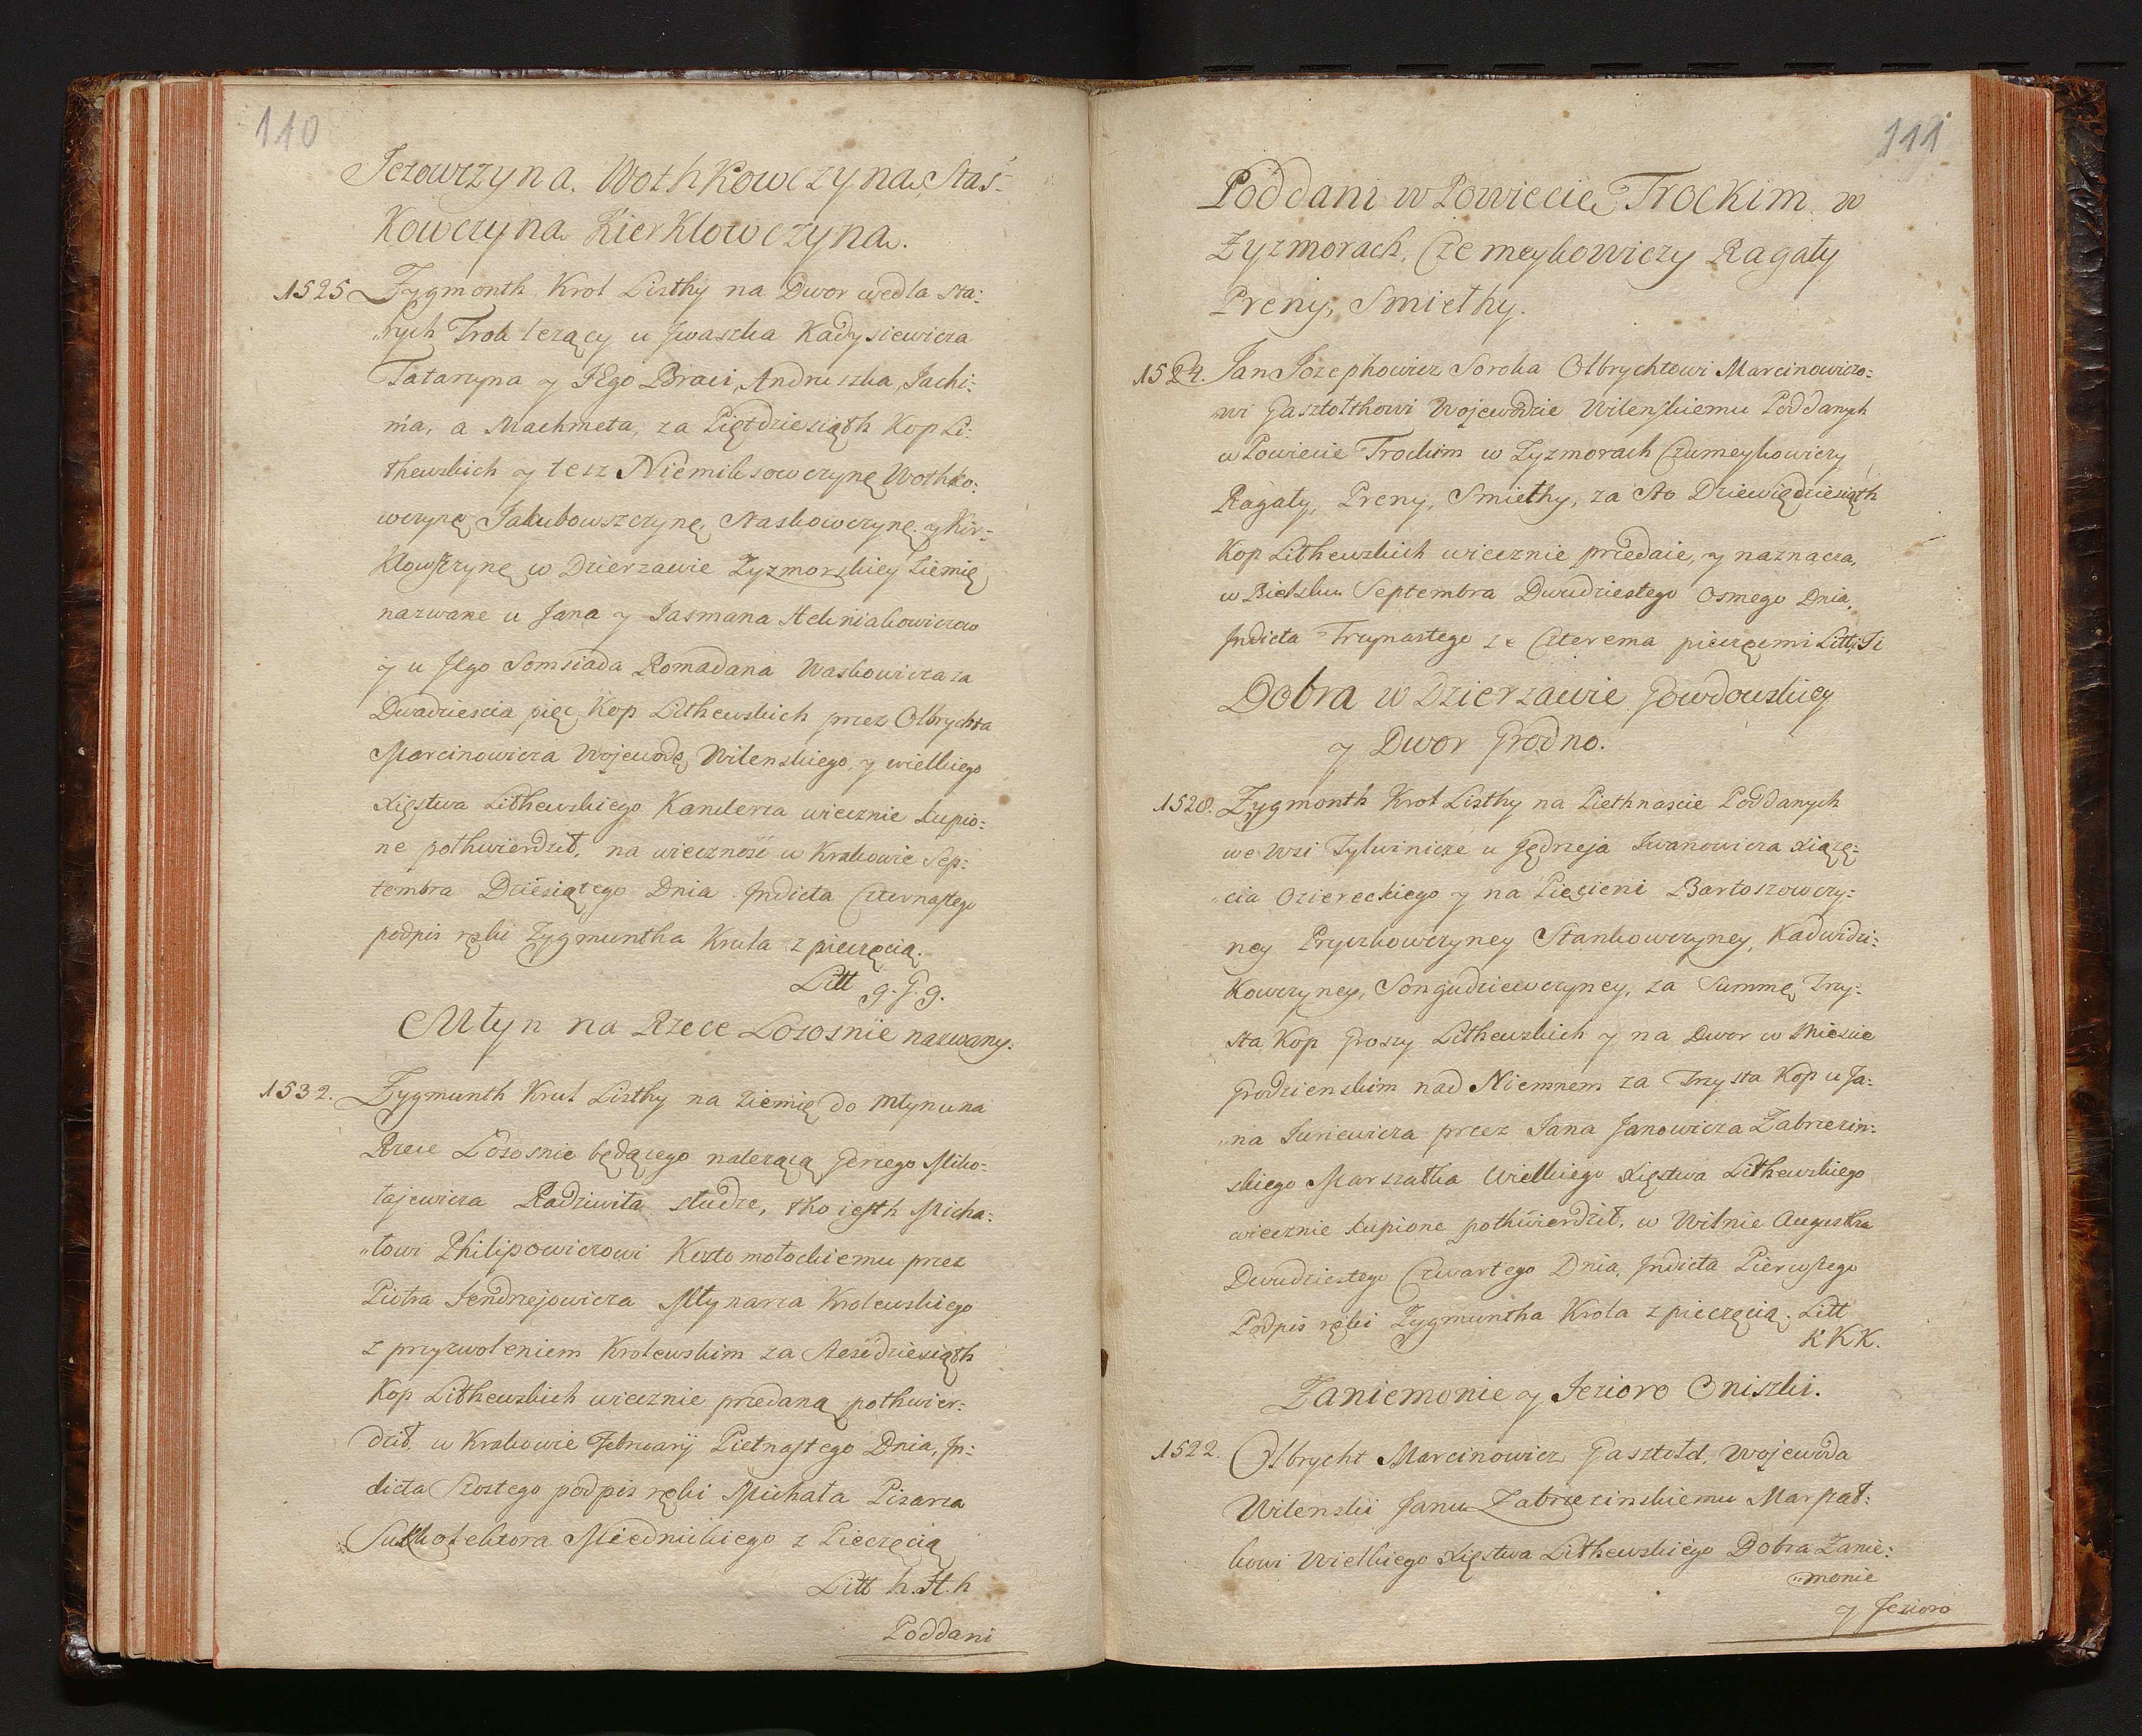 110
Jezowrzyna, Wothkowczyna, Stas-
kowczyna Kierklowczyna.
1525 Zygmonth Krol Listhy na Dwor wedla sta:
"rych Trok lezący u Jwaszka Kadysiewicza
Tatarzyna y JEgo Braci, Andruszka, Jachi:
ma, a Machmeta, za Pięćdziesiąth Kop Li:
thewskich y tesz Niemiksowczynę Wothko:
wczynę Jakubowszczynę, Staskowczynę y Kir-
klowszczynę w Dzierzawie Zyzmorskiey Ziemię
nazwane u Jana y Jasmana Achniakowiczow
y u JEgo Somsiada Romadana Waskowicza za
Dwadziescia pięc Kop Lithewskich przez Olbrychta
Marcinowicza Wojewodę Wilenskiego, y wielkiego
Xięstwa Lithewskiego Kanclerza wiecznie kupio:
ne pothwierdził, na wieczność w Krakowie Sep:
tembra Dziesiątego Dnia Jndicta Czternastego
podpis ręki Zygmuntha Krula z pieczęcią.
Litt g. G. g.
Młyn na Rzece Łososnie nazwany:
1532. Zygmunth Krul Listhy na ziemię do Młynu na
Rzece Łososnie będącego nalezącą Gerzego Miko-
łajewicza Radziwiła słudze, tho iesth Micha:
"łowi Philipowiczowi Kosto mołockiemu przez
Piotra Jendrzejowicza Młynarza Krolewskiego
z przyzwoleniem Krolewskim za Sześdziesiąth
Kop Lithewskich wiecznie przedaną pothwier:
dził, w Krakowie Februarij Pietnastego Dnia, Jn:
dicta Szostego podpis ręki Michała Pisarza
Sutholektora Miednickiego z Pieczęcią
Litt h. H. h
Poddani
111
Poddani w Powiecie Trockim w
Zyzmorach, Czemeykowiczy Ragały
Preny, Smiethy.
1524. Jan Jozephowicz Soroka Olbrychtowi Marcinowiczo:
wi Gasztołthowi Wojewodzie Wilenskiemu Poddanych
w Powiecie Trockim w Zyzmorach Czumeykowiczy
Ragały, Preny, Smiethy, za Sto Dziewiędziesiąth
Kop Lithewskich wiecznie przedaie, y naznacza,
w Bielsku Septembra Dwudziestego Osmego Dnia,
Jndicta Trzynastego ze Czterema pieczęcmi Litt: Ji
Dobra w Dzierzawie Gowdowskiey
y Dwor Grodno.
1528. Zygmonth Krol Listhy na Piethnascie Poddanych
we Wsi Tylwinicze u Gędrzeja Jwanowicza Xiązę:
"cia Oziereckiego y na Pięcieni Bartoszowczy:
ney Pryczkowczyney Stankowczyney, Kadwidzi:
kowczyney, Songudziewczyney, za Summę Trzy:
sta Kop Groszy Lithewskich y na Dwor w Miescie
Grodzienskim nad Niemnem za Trzysta Kop u Ja:
"na Juriewicza przez Jana Janowicza Zabrzezin:
skiego Marszałka Wielkiego Xięstwa Lithewskiego
wiecznie kupione pothwierdził, w Wilnie Augustha
Dwudziestego Czwartego Dnia, Jndicta Pierwszego
Podpis ręki Zygmuntha Krola z pieczęcią. Litt
K K K.
Zaniemonie y Jezioro Oniszki.
1522. Olbrycht Marcinowicz Gasztold, Wojewoda
Wilenski Janu Zabrzezinskiemu Marszał:
kowi Wielkiego Xięstwa Lithewskiego Dobra Zanie:
"monie
y Jezioro